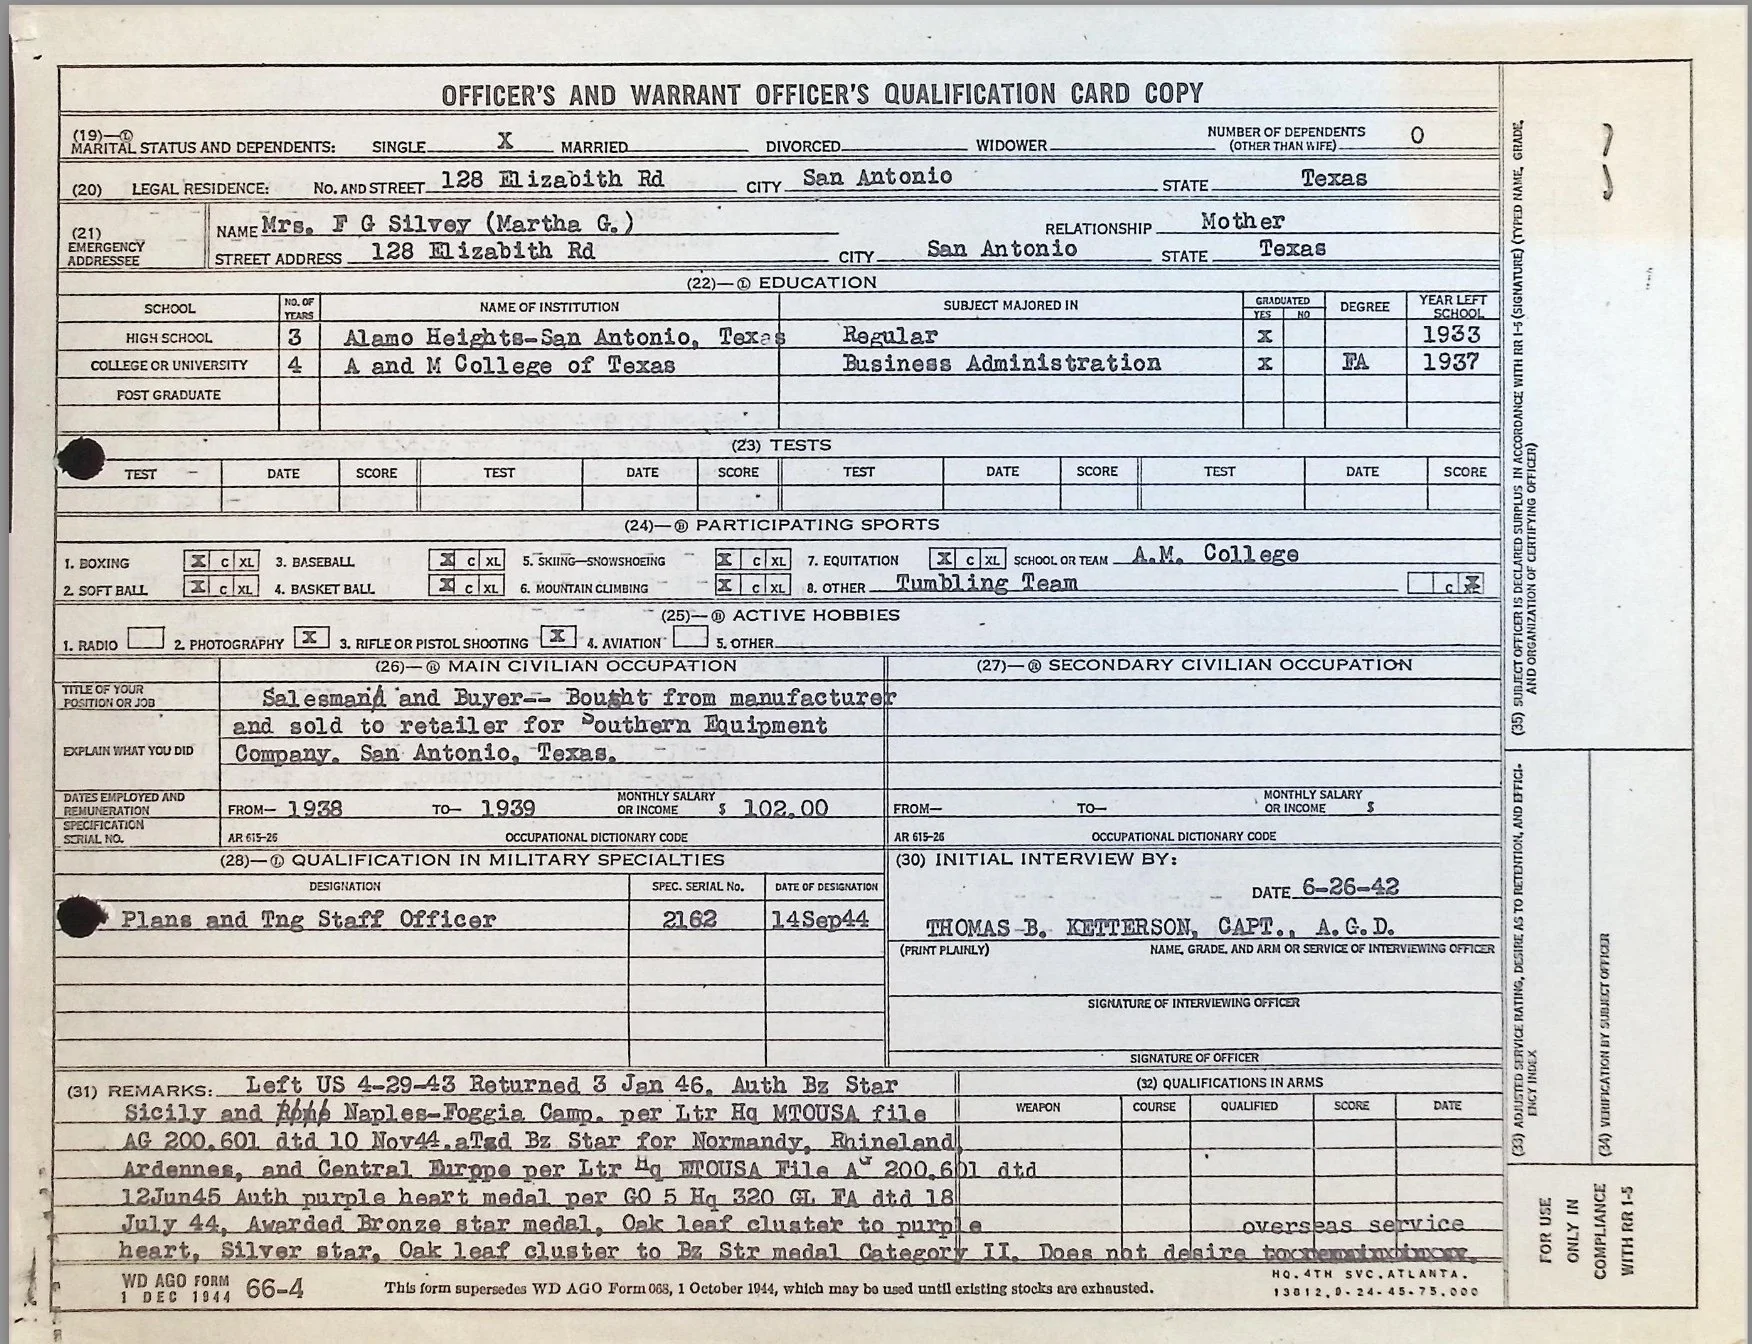 OFFICER'S AND WARRANT OFFICER'S QUALIFICATION CARD COPY
(19)—Ⓛ MARITAL STATUS AND DEPENDENTS: SINGLE X MARRIED DIVORCED WIDOWER NUMBER OF DEPENDENTS (OTHER THAN WIFE) 0
(20) LEGAL RESIDENCE: No. AND STREET 128 Elizabith Rd CITY San Antonio STATE Texas
(21) EMERGENCY ADDRESSEE NAME Mrs. F G Silvey (Martha G.) RELATIONSHIP Mother
STREET ADDRESS 128 Elizabith Rd CITY San Antonio STATE Texas
(22)—Ⓛ EDUCATION
SCHOOL NO. OF YEARS NAME OF INSTITUTION SUBJECT MAJORED IN GRADUATED YES NO DEGREE YEAR LEFT SCHOOL
HIGH SCHOOL 3 Alamo Heights-San Antonio, Texas Regular X 1933
COLLEGE OR UNIVERSITY 4 A and M College of Texas Business Administration X FA 1937
POST GRADUATE
(23) TESTS
TEST DATE SCORE TEST DATE SCORE TEST DATE SCORE TEST DATE SCORE
(24)—Ⓑ PARTICIPATING SPORTS
1. BOXING X C XL 3. BASEBALL X C XL 5. SKIING—SNOWSHOEING X C XL 7. EQUITATION X C XL SCHOOL OR TEAM A.M. College
2. SOFT BALL X C XL 4. BASKET BALL X C XL 6. MOUNTAIN CLIMBING X C XL 8. OTHER Tumbling Team C X
(25)—Ⓑ ACTIVE HOBBIES
1. RADIO 2. PHOTOGRAPHY X 3. RIFLE OR PISTOL SHOOTING X 4. AVIATION 5. OTHER
(26)—Ⓡ MAIN CIVILIAN OCCUPATION (27)—Ⓡ SECONDARY CIVILIAN OCCUPATION
TITLE OF YOUR POSITION OR JOB Salesman and Buyer-- Bought from manufacturer
and sold to retailer for Southern Equipment
EXPLAIN WHAT YOU DID Company. San Antonio, Texas.
DATES EMPLOYED AND REMUNERATION FROM— 1938 TO— 1939 MONTHLY SALARY OR INCOME $ 102.00 FROM— TO— MONTHLY SALARY OR INCOME $
SPECIFICATION SERIAL NO. AR 615-26 OCCUPATIONAL DICTIONARY CODE AR 615-26 OCCUPATIONAL DICTIONARY CODE
(28)—Ⓛ QUALIFICATION IN MILITARY SPECIALTIES (30) INITIAL INTERVIEW BY:
DESIGNATION SPEC. SERIAL No. DATE OF DESIGNATION DATE 6-26-42
Plans and Tng Staff Officer 2162 14Sep44 THOMAS B. KETTERSON, CAPT., A.G.D.
(PRINT PLAINLY) NAME, GRADE, AND ARM OR SERVICE OF INTERVIEWING OFFICER
SIGNATURE OF INTERVIEWING OFFICER
SIGNATURE OF OFFICER
(31) REMARKS: Left US 4-29-43 Returned 3 Jan 46. Auth Bz Star
Sicily and Naples-Foggia Camp. per Ltr Hq MTOUSA file
AG 200.601 dtd 10 Nov44.aTsd Bz Star for Normandy, Rhineland,
Ardennes, and Central Eurppe per Ltr Hq ETOUSA File AG 200.601 dtd
12Jun45 Auth purple heart medal per GO 5 Hq 320 GL FA dtd 18
July 44, Awarded Bronze star medal, Oak leaf cluster to purple overseas service
heart, Silver star, Oak leaf cluster to Bz Str medal Category II. Does not desire
(32) QUALIFICATIONS IN ARMS
WEAPON COURSE QUALIFIED SCORE DATE
WD AGO FORM 66-4
1 DEC 1944
This form supersedes WD AGO Form 068, 1 October 1944, which may be used until existing stocks are exhausted.
HQ. 4TH SVC. ATLANTA.
13812,9-24-45-75,000
(35) SUBJECT OFFICER IS DECLARED SURPLUS IN ACCORDANCE WITH RR 1-5 (SIGNATURE) (TYPED NAME, GRADE, AND ORGANIZATION OF CERTIFYING OFFICER)
(33) ADJUSTED SERVICE RATING, DESIRE AS TO RETENTION, AND EFFICIENCY INDEX
(34) VERIFICATION BY SUBJECT OFFICER
FOR USE
ONLY IN
COMPLIANCE
WITH RR 1-5